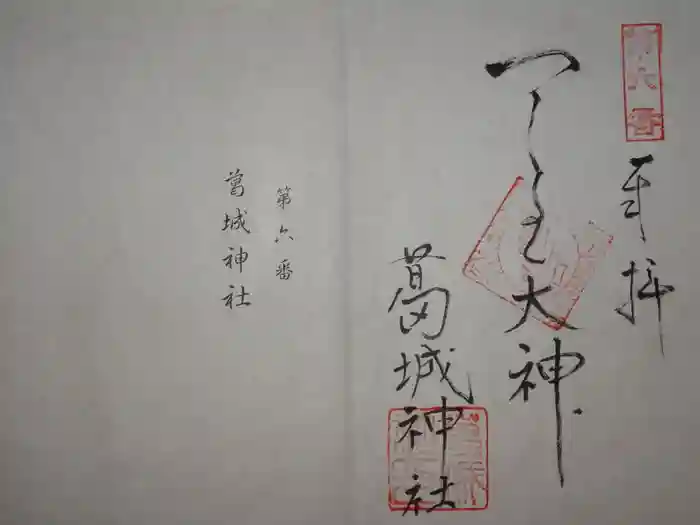 第六番
奉拝
一言主大神
葛城神社
第六番
葛城神社